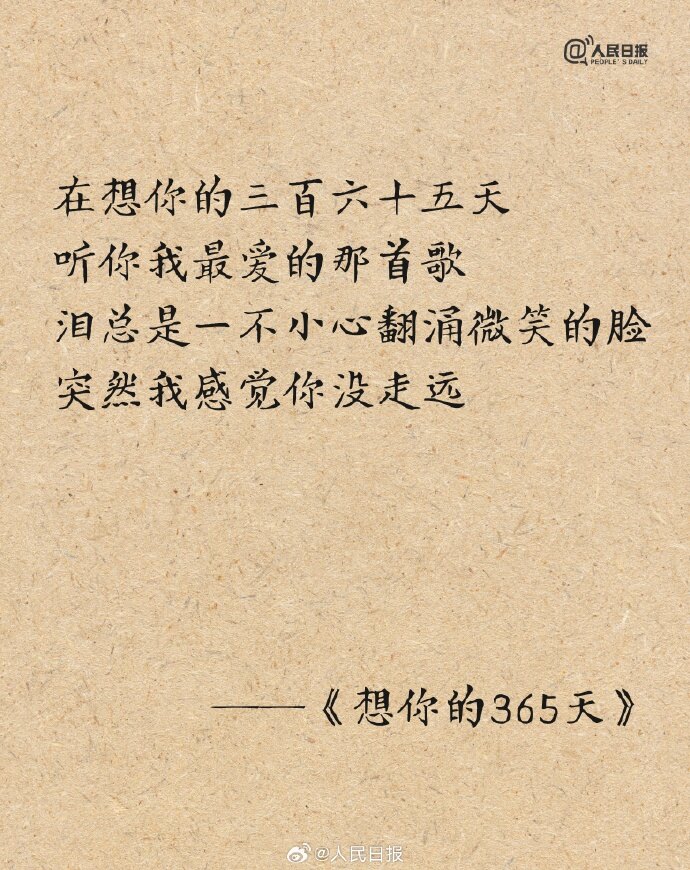 @人民日报
PEOPLE'S DAILY
在想你的三百六十五天
听你我最爱的那首歌
泪总是一不小心翻涌微笑的脸
突然我感觉你没走远
——《想你的365天》
@人民日报